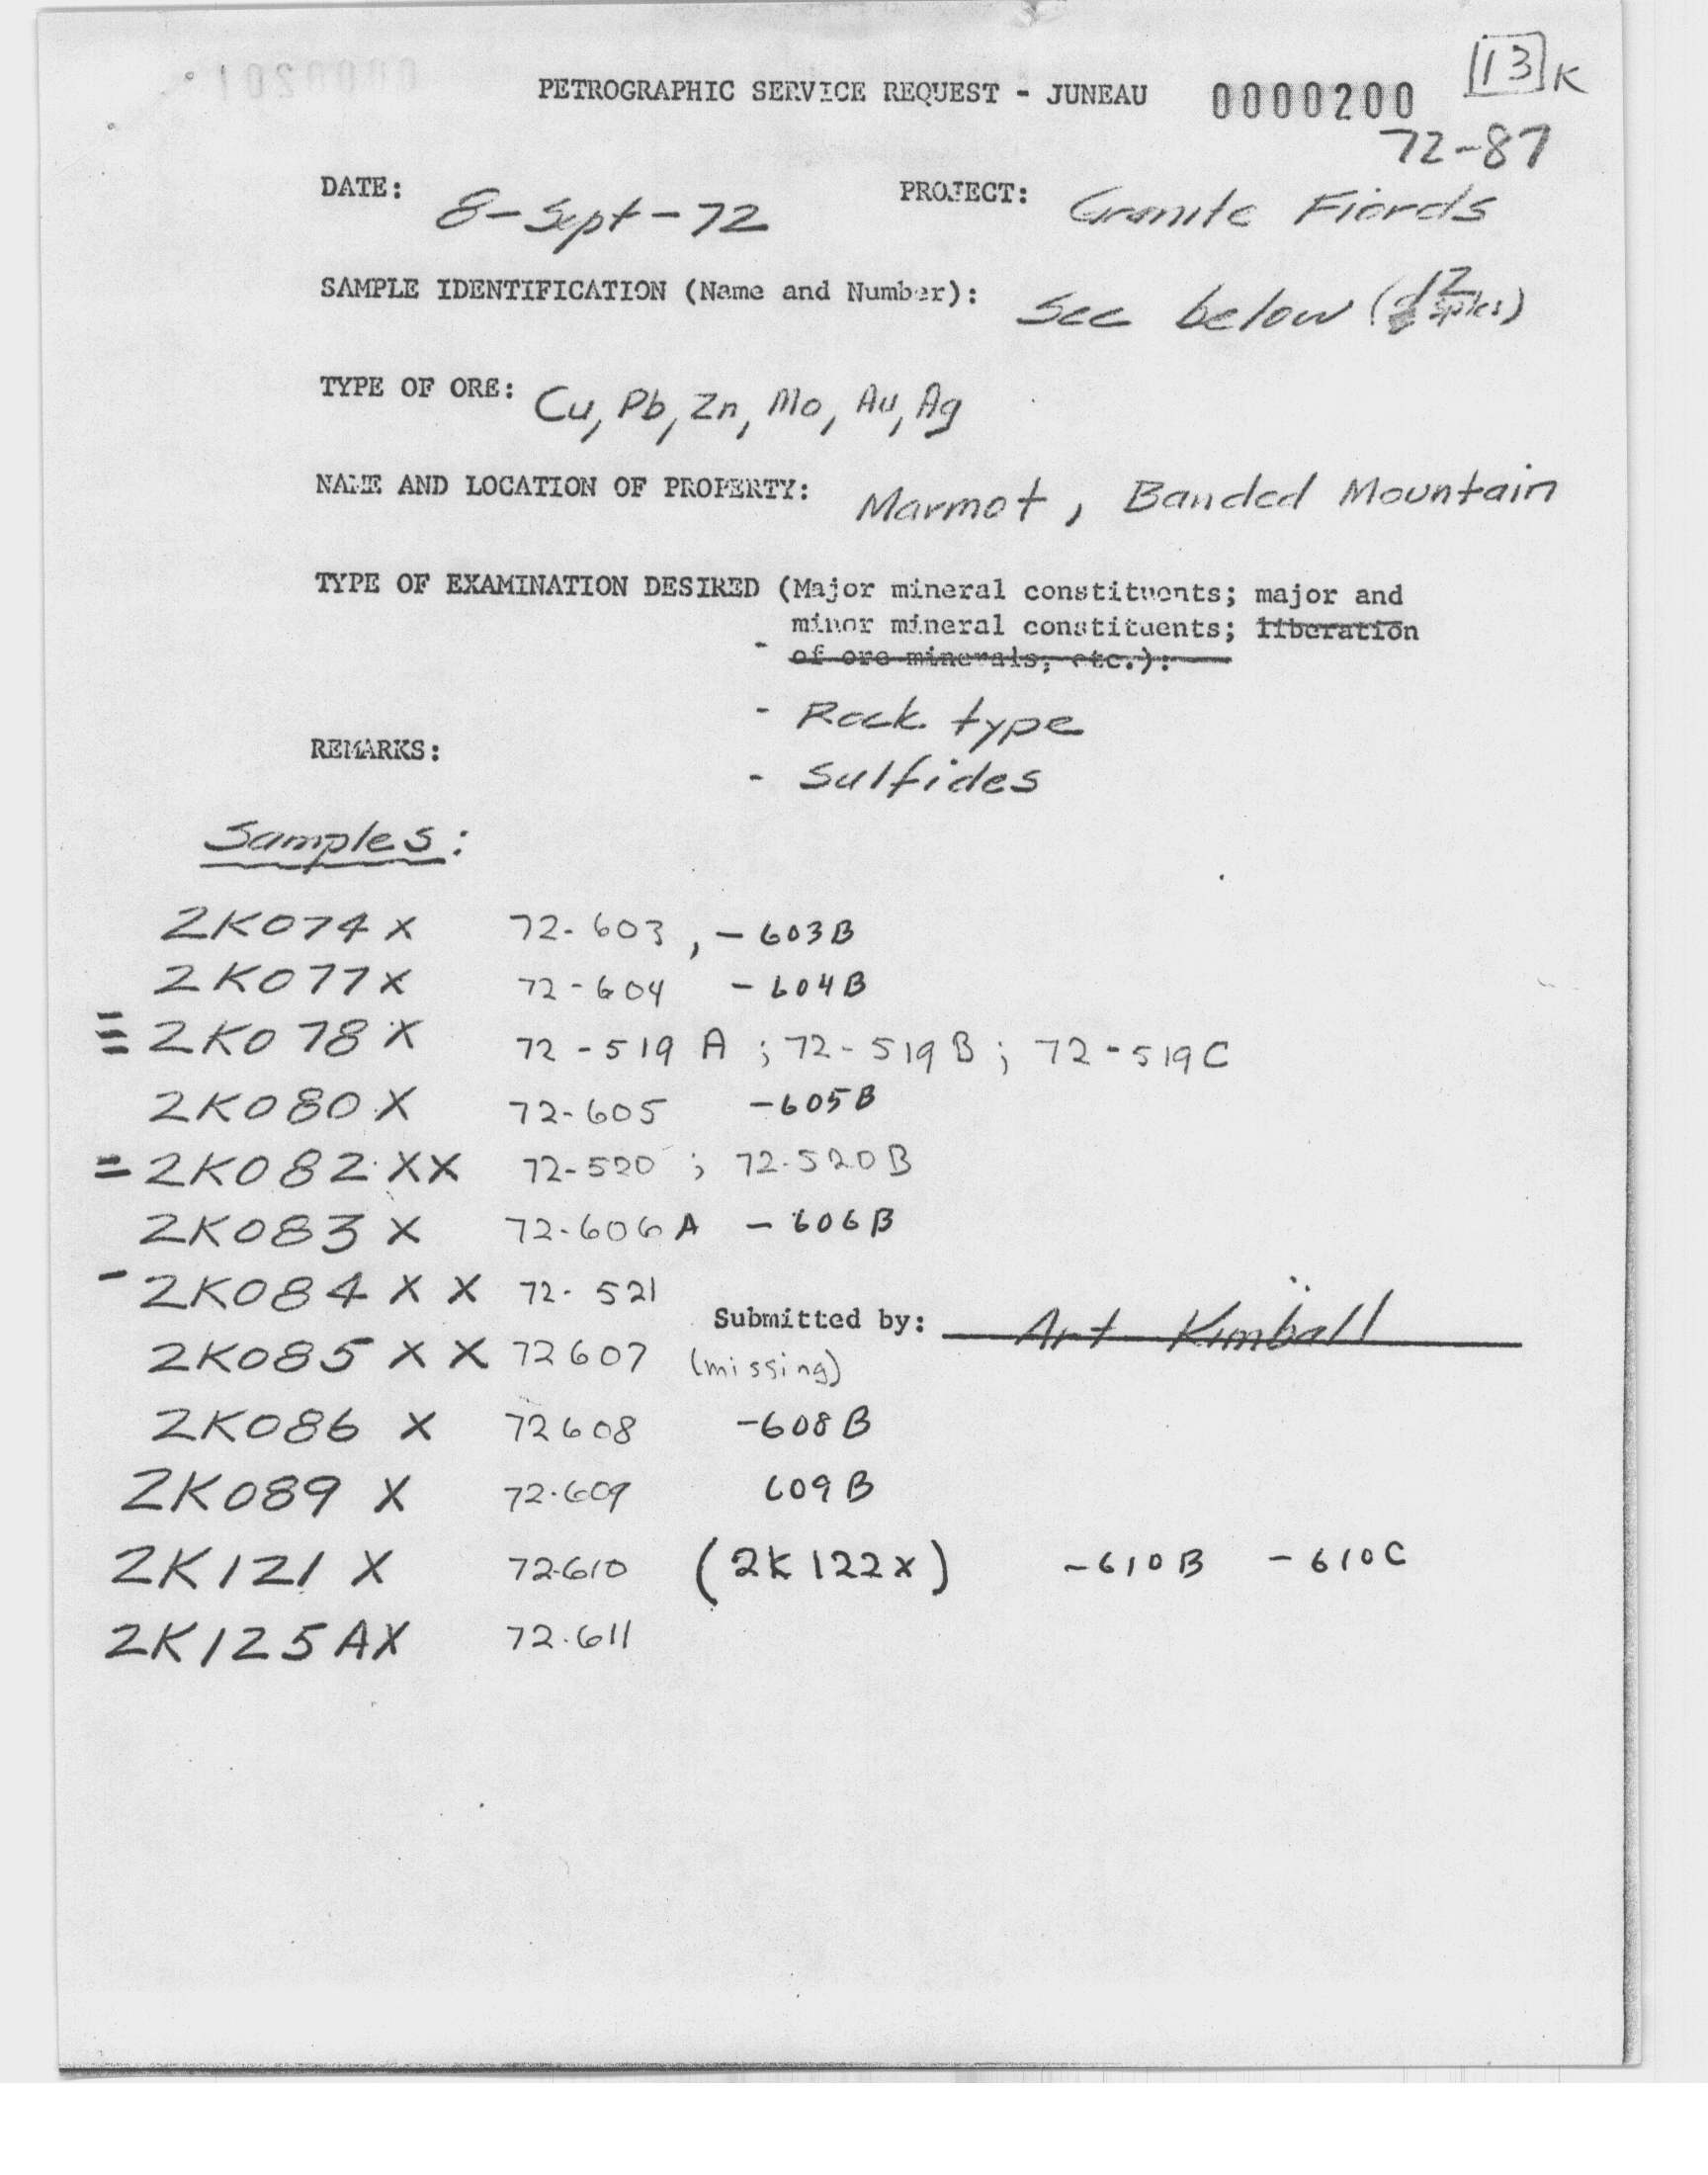 [13] K
PETROGRAPHIC SERVICE REQUEST - JUNEAU 0000200
72-87
DATE: 8-Sept-72 PROJECT: Granite Fiords
SAMPLE IDENTIFICATION (Name and Number): See below (12 spls)
TYPE OF ORE: Cu, Pb, Zn, Mo, Au, Ag
NAME AND LOCATION OF PROPERTY: Marmot, Banded Mountain
TYPE OF EXAMINATION DESIRED (Major mineral constituents; major and
minor mineral constituents; liberation
- of ore minerals, etc.):
- Rock type
REMARKS:
- Sulfides
Samples:
2K074X 72-603, -603B
2K077X 72-604 -604B
≡ 2K078X 72-519A; 72-519B; 72-519C
2K080X 72-605 -605B
= 2K082XX 72-520; 72-520B
2K083X 72-606A -606B
- 2K084XX 72-521
Submitted by: Art Kimball
2K085XX 72607 (missing)
2K086 X 72608 -608B
2K089 X 72-609 609B
2K121 X 72-610 (2K122X) -610B -610C
2K125AX 72-611